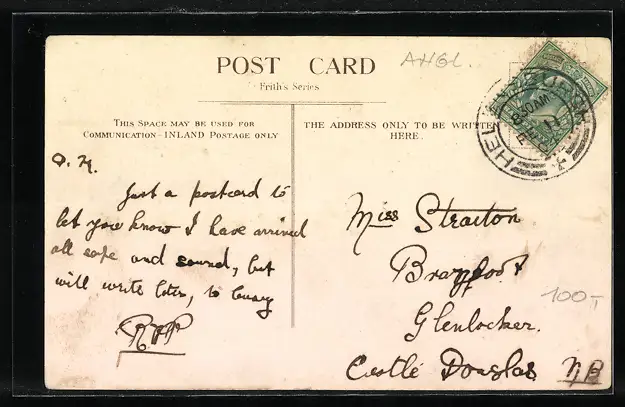 POST CARD
Frith's Series
ANGL.
THIS SPACE MAY BE USED FOR
COMMUNICATION-INLAND POSTAGE ONLY
THE ADDRESS ONLY TO BE WRITTEN
HERE.
8 30 AM
Just a postcard to
let you know I have arrived
all safe and sound, but
will write later, to
RPP
Miss Straiton
Glenlocker.
Castle Douglas NB
100,-